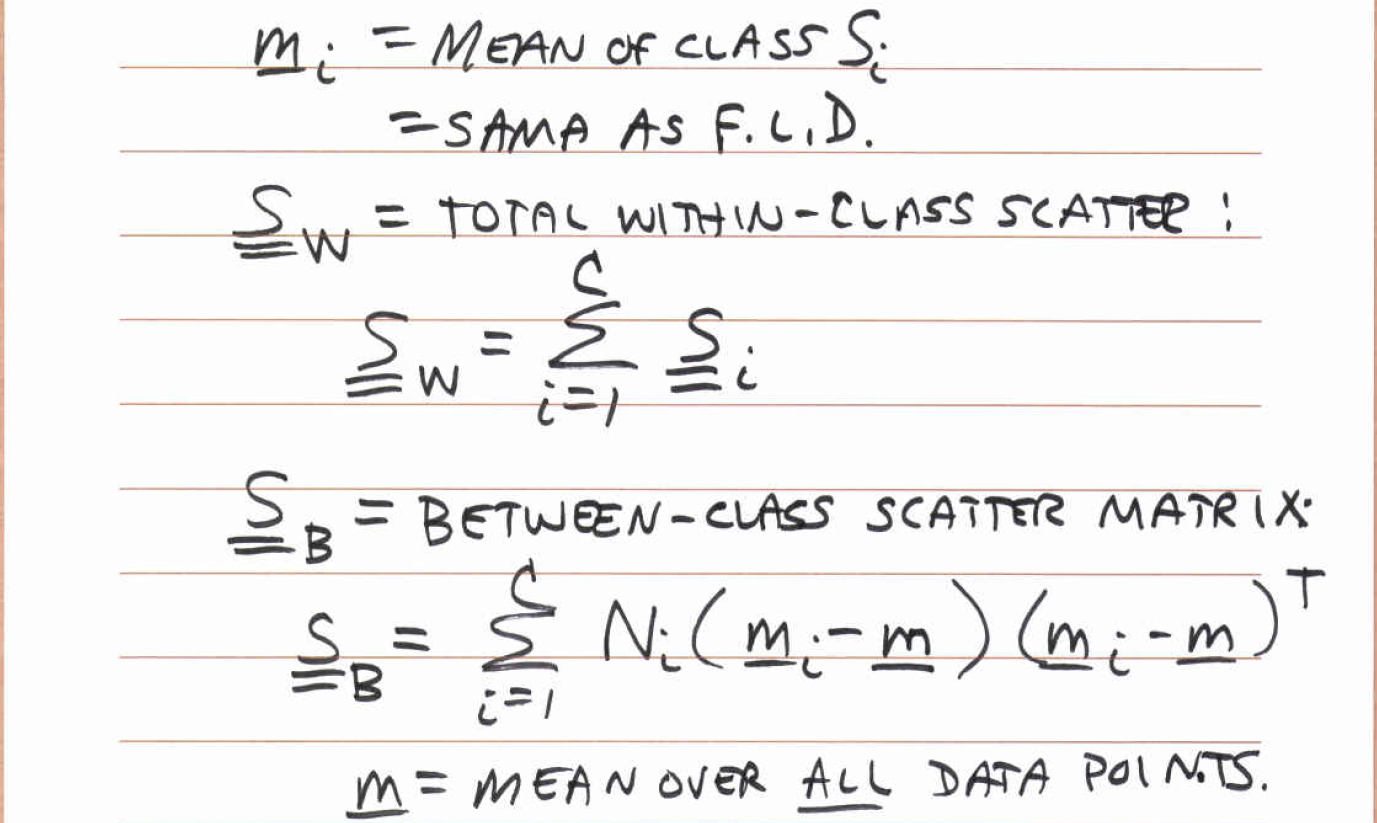 m̲ᵢ = MEAN OF CLASS Sᵢ
= SAMA AS F.L.D.
S̳_W = TOTAL WITHIN-CLASS SCATTER :
S̳_W = ∑_{i=1}^{C} S̳ᵢ
S̳_B = BETWEEN-CLASS SCATTER MATRIX:
S̳_B = ∑_{i=1}^{C} Nᵢ ( m̲ᵢ - m̲ ) ( m̲ᵢ - m̲ )^T
m̲ = MEAN OVER ALL DATA POINTS.